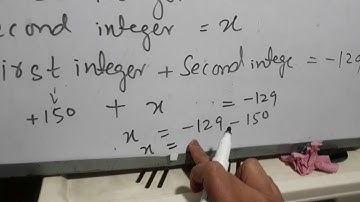 second integer = x
First integer + Second intege = -129
+150 + x = -129
x = -129 - 150
x =